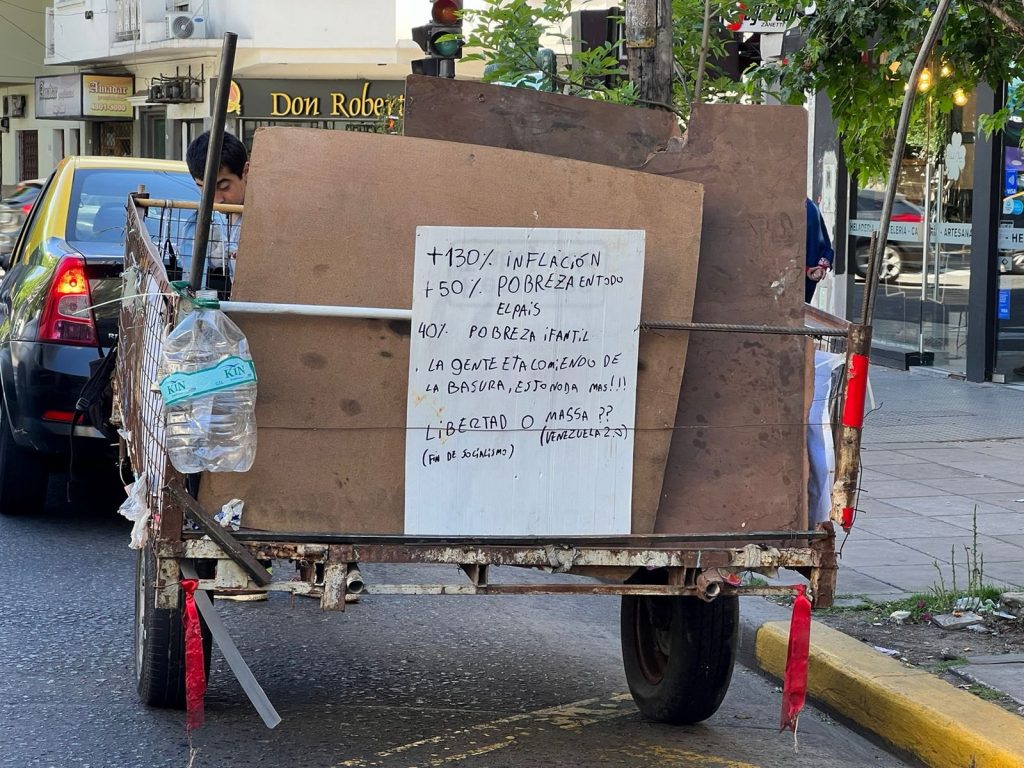 Amadar
4801-3000
Don Robert
ZANETTI
HELADERIA
ARTESANA
HE
+130% INFLACIÓN
+50% POBREZA EN TODO
EL PAIS
40% POBREZA IFANTIL
. LA GENTE ETA COMIENDO DE
LA BASURA, ESTO NO DA MAS!!!
LIBERTAD O MASSA ??
(FIN DE SOCIALISMO) (VENEZUELA 2.0)
KIN
KIN